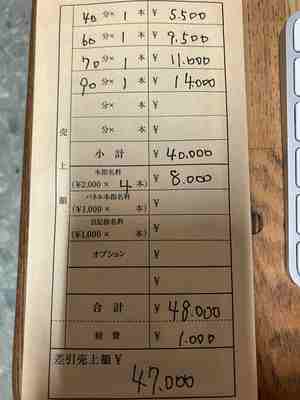 40 分× 1 本 ¥ 5.500
60 分× 1 本 ¥ 9.500
70 分× 1 本 ¥ 11.000
90 分× 1 本 ¥ 14.000
分× 本 ¥
分× 本 ¥
売上額
小計 ¥ 40.000
本指名料
(¥2,000 × 4 本) ¥ 8.000
パネル本指名料
(¥1,000 × 本) ¥
日記指名料
(¥1,000 × 本) ¥
オプション ¥
¥
合計 ¥ 48.000
雑費 ¥ 1.000
差引売上額 ¥
47.000